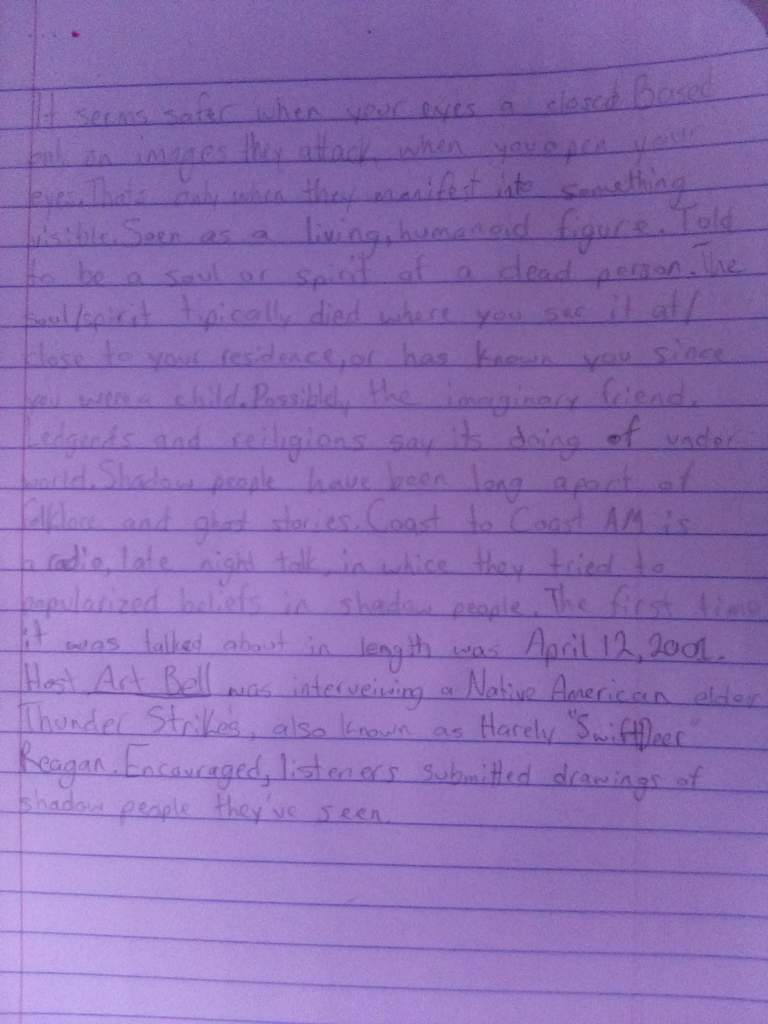 It seems safer when your eyes a closed. Based
on images they attack when you open your
eyes. Thats only when they manifest into something
visible. Seen as a living, humanoid figure. Told
to be a soul or spirit of a dead person. The
soul/spirit tipically died where you see it at/
close to your residence, or has known you since
you were a child. Possibley the imaginary friend.
Ledgends and reiligions say its doing of under
world. Shadow people have been long apart of
folklore and ghost stories. Coast to Coast AM is
a radio, late night talk, in whice they tried to
popularized beliefs in shadow people. The first time
it was talked about in length was April 12, 2001.
Host Art Bell was interveiwing a Native American elder
Thunder Strikes, also known as Harely "SwiftDeer"
Reagan. Encouraged, listeners submitted drawings of
shadow people they've seen.